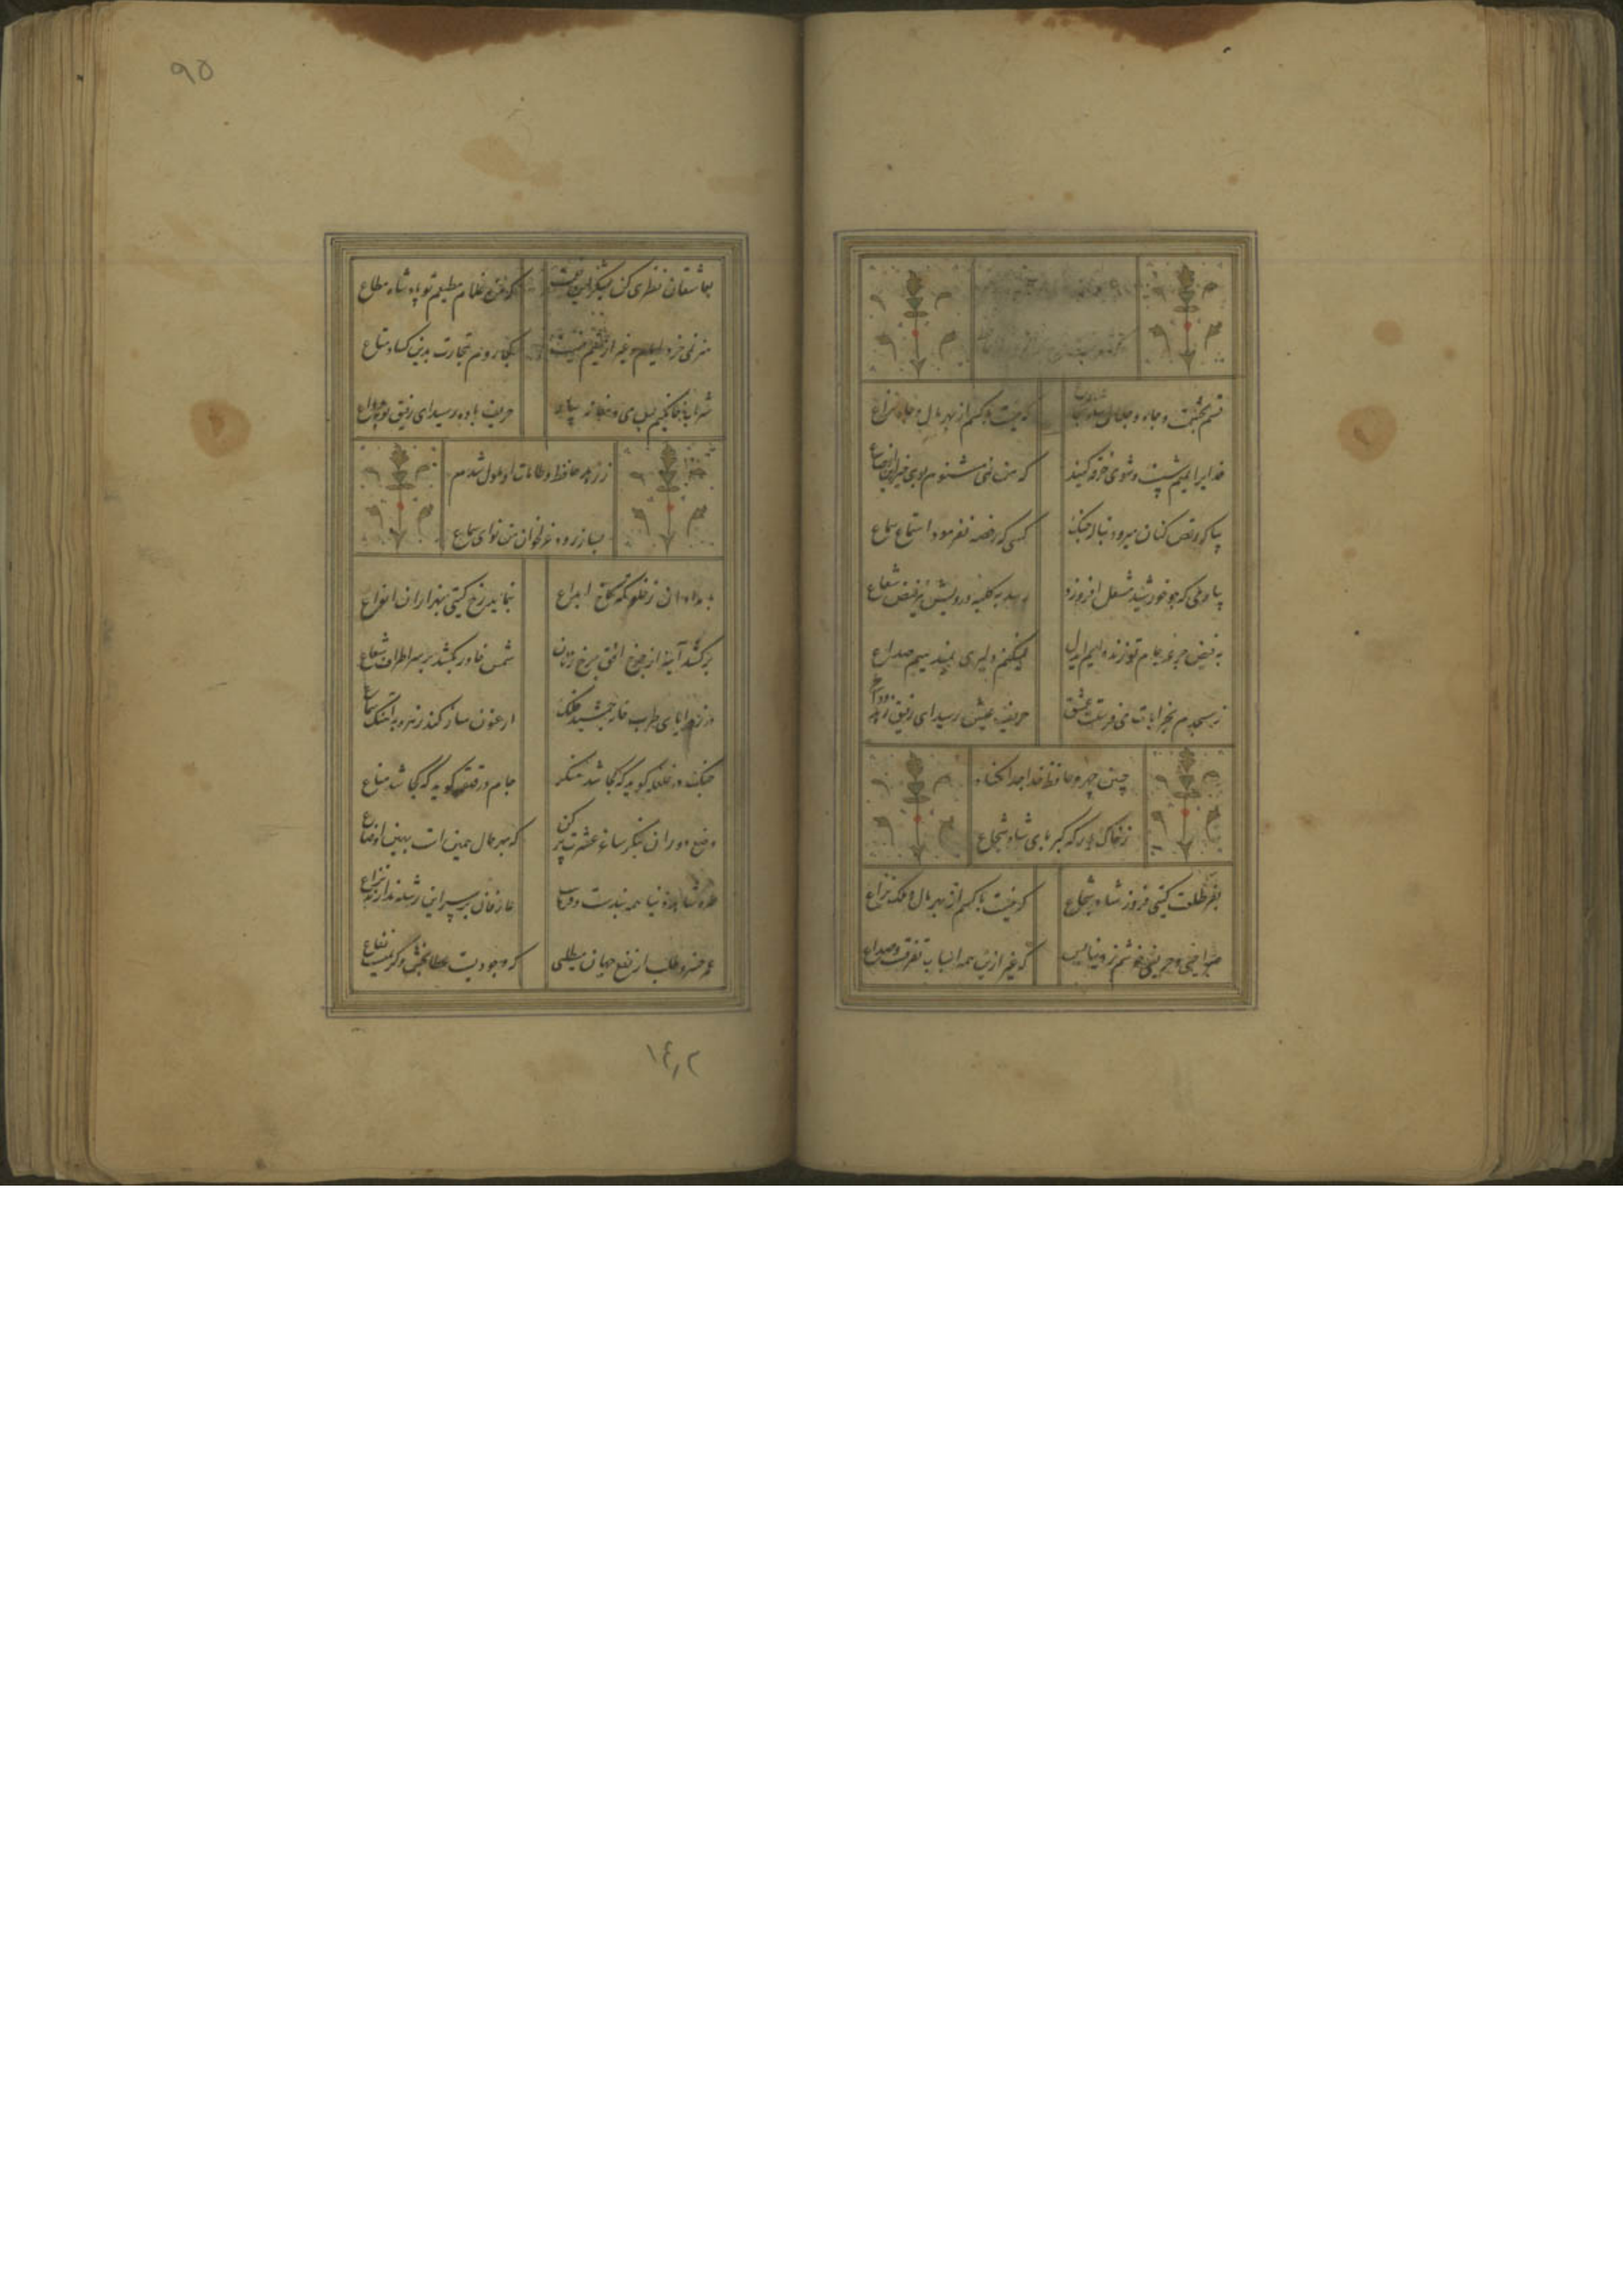 قسم بحشمت و جاه و جلال شاه شجاع
که نیست با کسم از بهر مال و جاه نزاع
خدایرا بمیم شست و شوی خرقه کنید
که من نمی‌شنوم بوی خیر ازین اوضاع
ببین که رقص کنان میرود بناله چنگ
کسی که رخصه نفرمود استماع سماع
بیا و می که چو خورشید مشعل افروزد
رسد به کلبه درویش نیز فیض شعاع
به فیض جرعه جام تو زنده‌ایم ای دل
نمیکنم دلیری نمیدهیم صداع
ز مسجدم بخرابات می فرستد عشق
حریف عیش رسید ای رفیق زود وداع
جبین چهره حافظ خدا جدا مکناد
ز خاک درگه کبریای شاه شجاع
بفر طلعت گیتی فروز شاه شجاع
که نیست با کسم از بهر مال و ملک نزاع
صراحی و حریفی خوشم ز دنیا بس
که غیر ازین همه اسباب تفرقه و صداع
۹۵
بعاشقان نظری کن بشکر این نعمت
که من غلام مطیعم تو پادشاه مطاع
هنر نمی‌خرد ایام و غیر ازینم نیست
کجا روم تجارت بدین کساد متاع
حریف باده رسید ای رفیق توبه وداع
ز زهد حافظ و طامات او ملول شدم
بساز رود و غزلخوان من نوای سماع
بامدادان ز خلوتگه کاخ ابداع
بنماید رخ گیتی بهزاران انواع
برکشد آینه از جیب افق چرخ زنان
شمس خاور بکشد بر سر اطراف شعاع
در زوایای طرب خانه جمشید فلک
ارغنون ساز کند زهره به آهنگ سماع
چنگ در غلغله گوید که کجا شد منکر
جام در قهقهه گوید که کجا شد مناع
وضع دوران بنگر ساغر عشرت پر کن
که بهر حال همین است بهین اوضاع
طره شاهد دنیا همه بندست و فریب
عارفان بر سر این رشته ندارند نزاع
عمر خسرو طلب ار نفع جهان میطلبی
که وجودیست عطا بخش و کریمی نفاع
۱٤۲